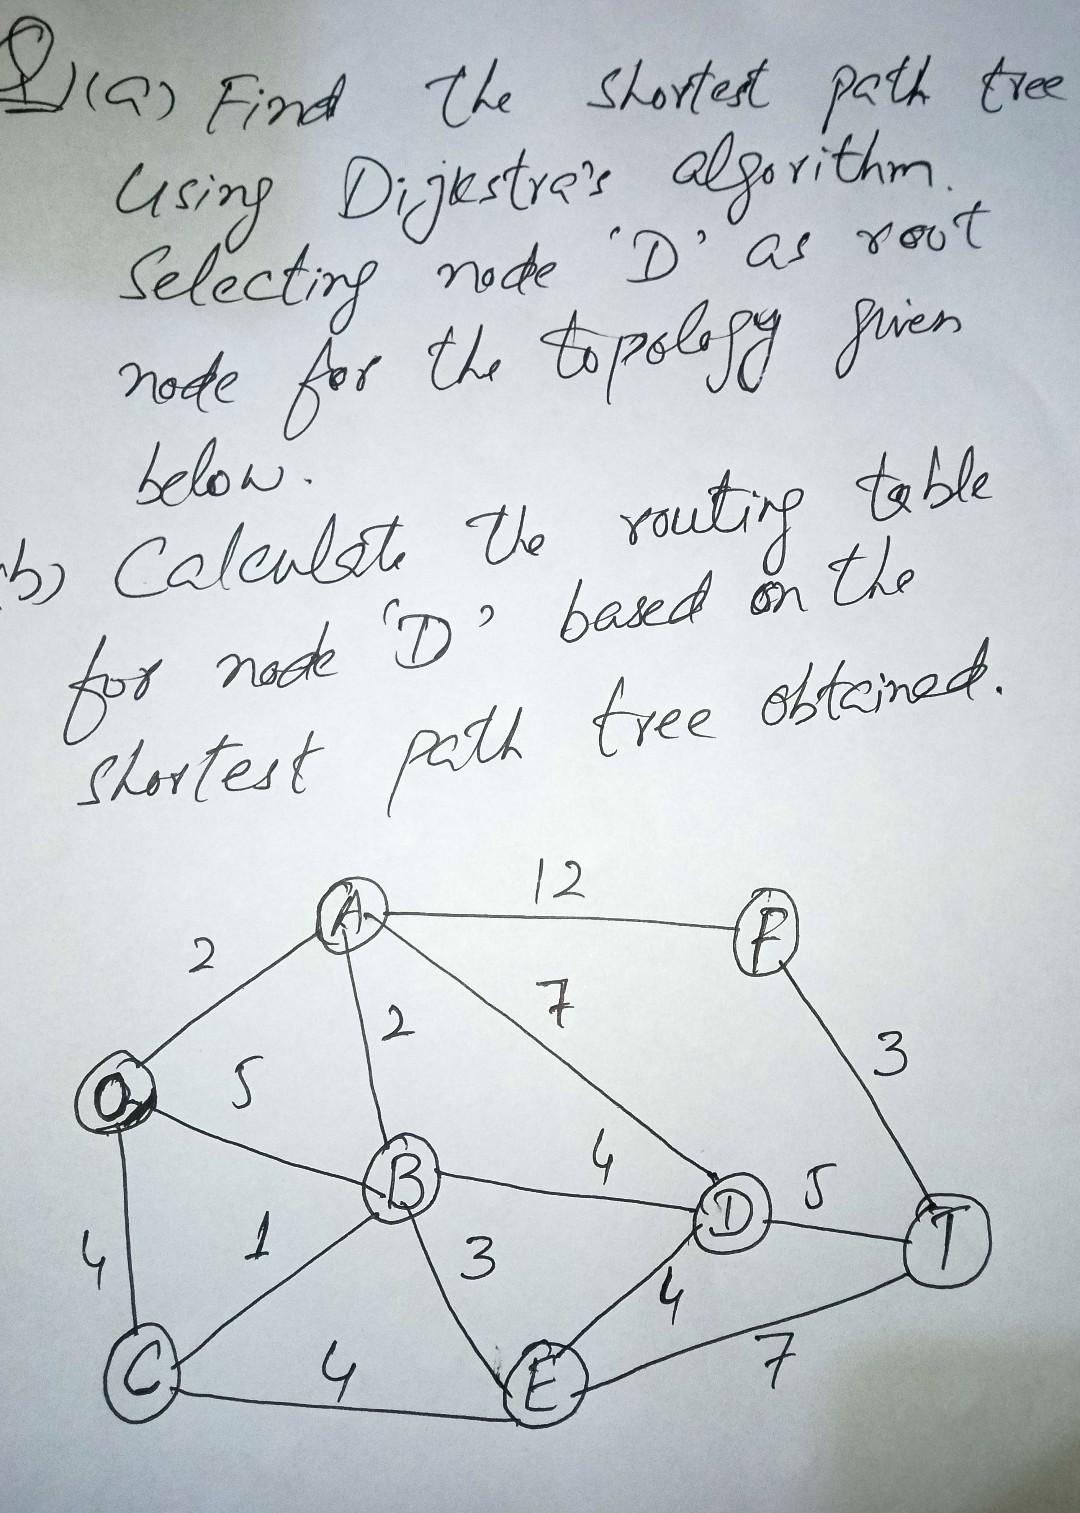 Q1(a) Find the shortest path tree
using Dijkstra's algorithm.
Selecting node 'D' as root
node for the topology given
below.
(b) Calculate the routing table
for node 'D' based on the
shortest path tree obtained.
A 12 F
2 2 7 3
O 5
B 4 D 5 T
4 1 3 4
C 4 E 7